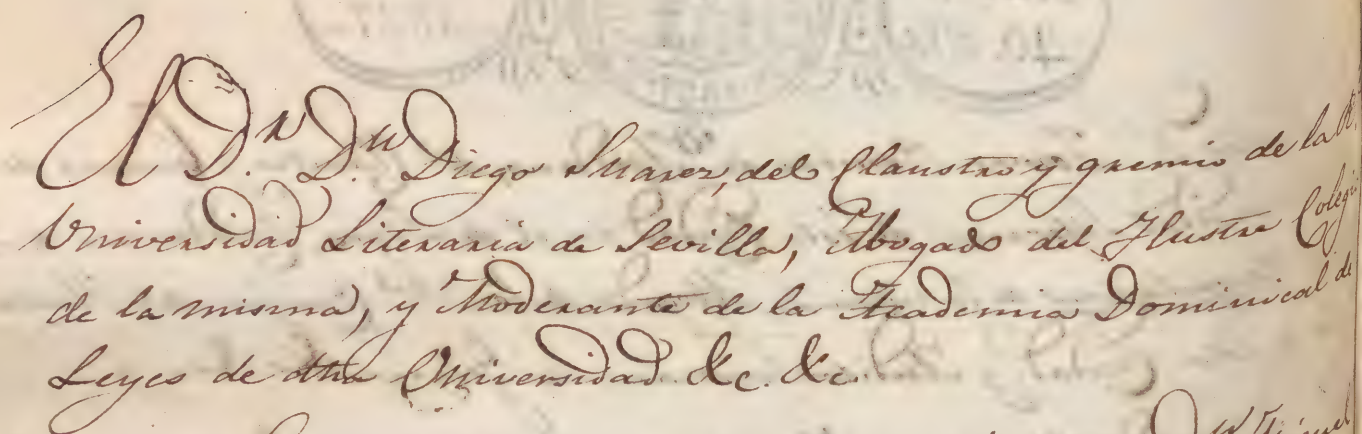 El D.r D.n Diego Suarez, del Claustro y gremio de la R.
Universidad Literaria de Sevilla, Abogado del Ilustre Colegio
de la misma, y Moderante de la Academia Dominical de
Leyes de dha Universidad &c. &c.